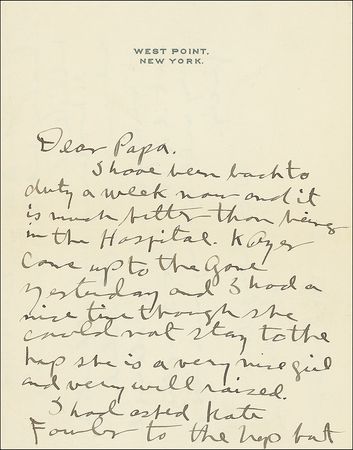 WEST POINT.
NEW YORK.
Dear Papa.
I have been back to
duty a week now and it
is much better than being
in the Hospital. K Ayer
came up to the Game
yesterday and I had a
nice time though she
could not stay to the
hop she is a very nice girl
and very well raised.
I had asked Kate
Fowler to the hop but